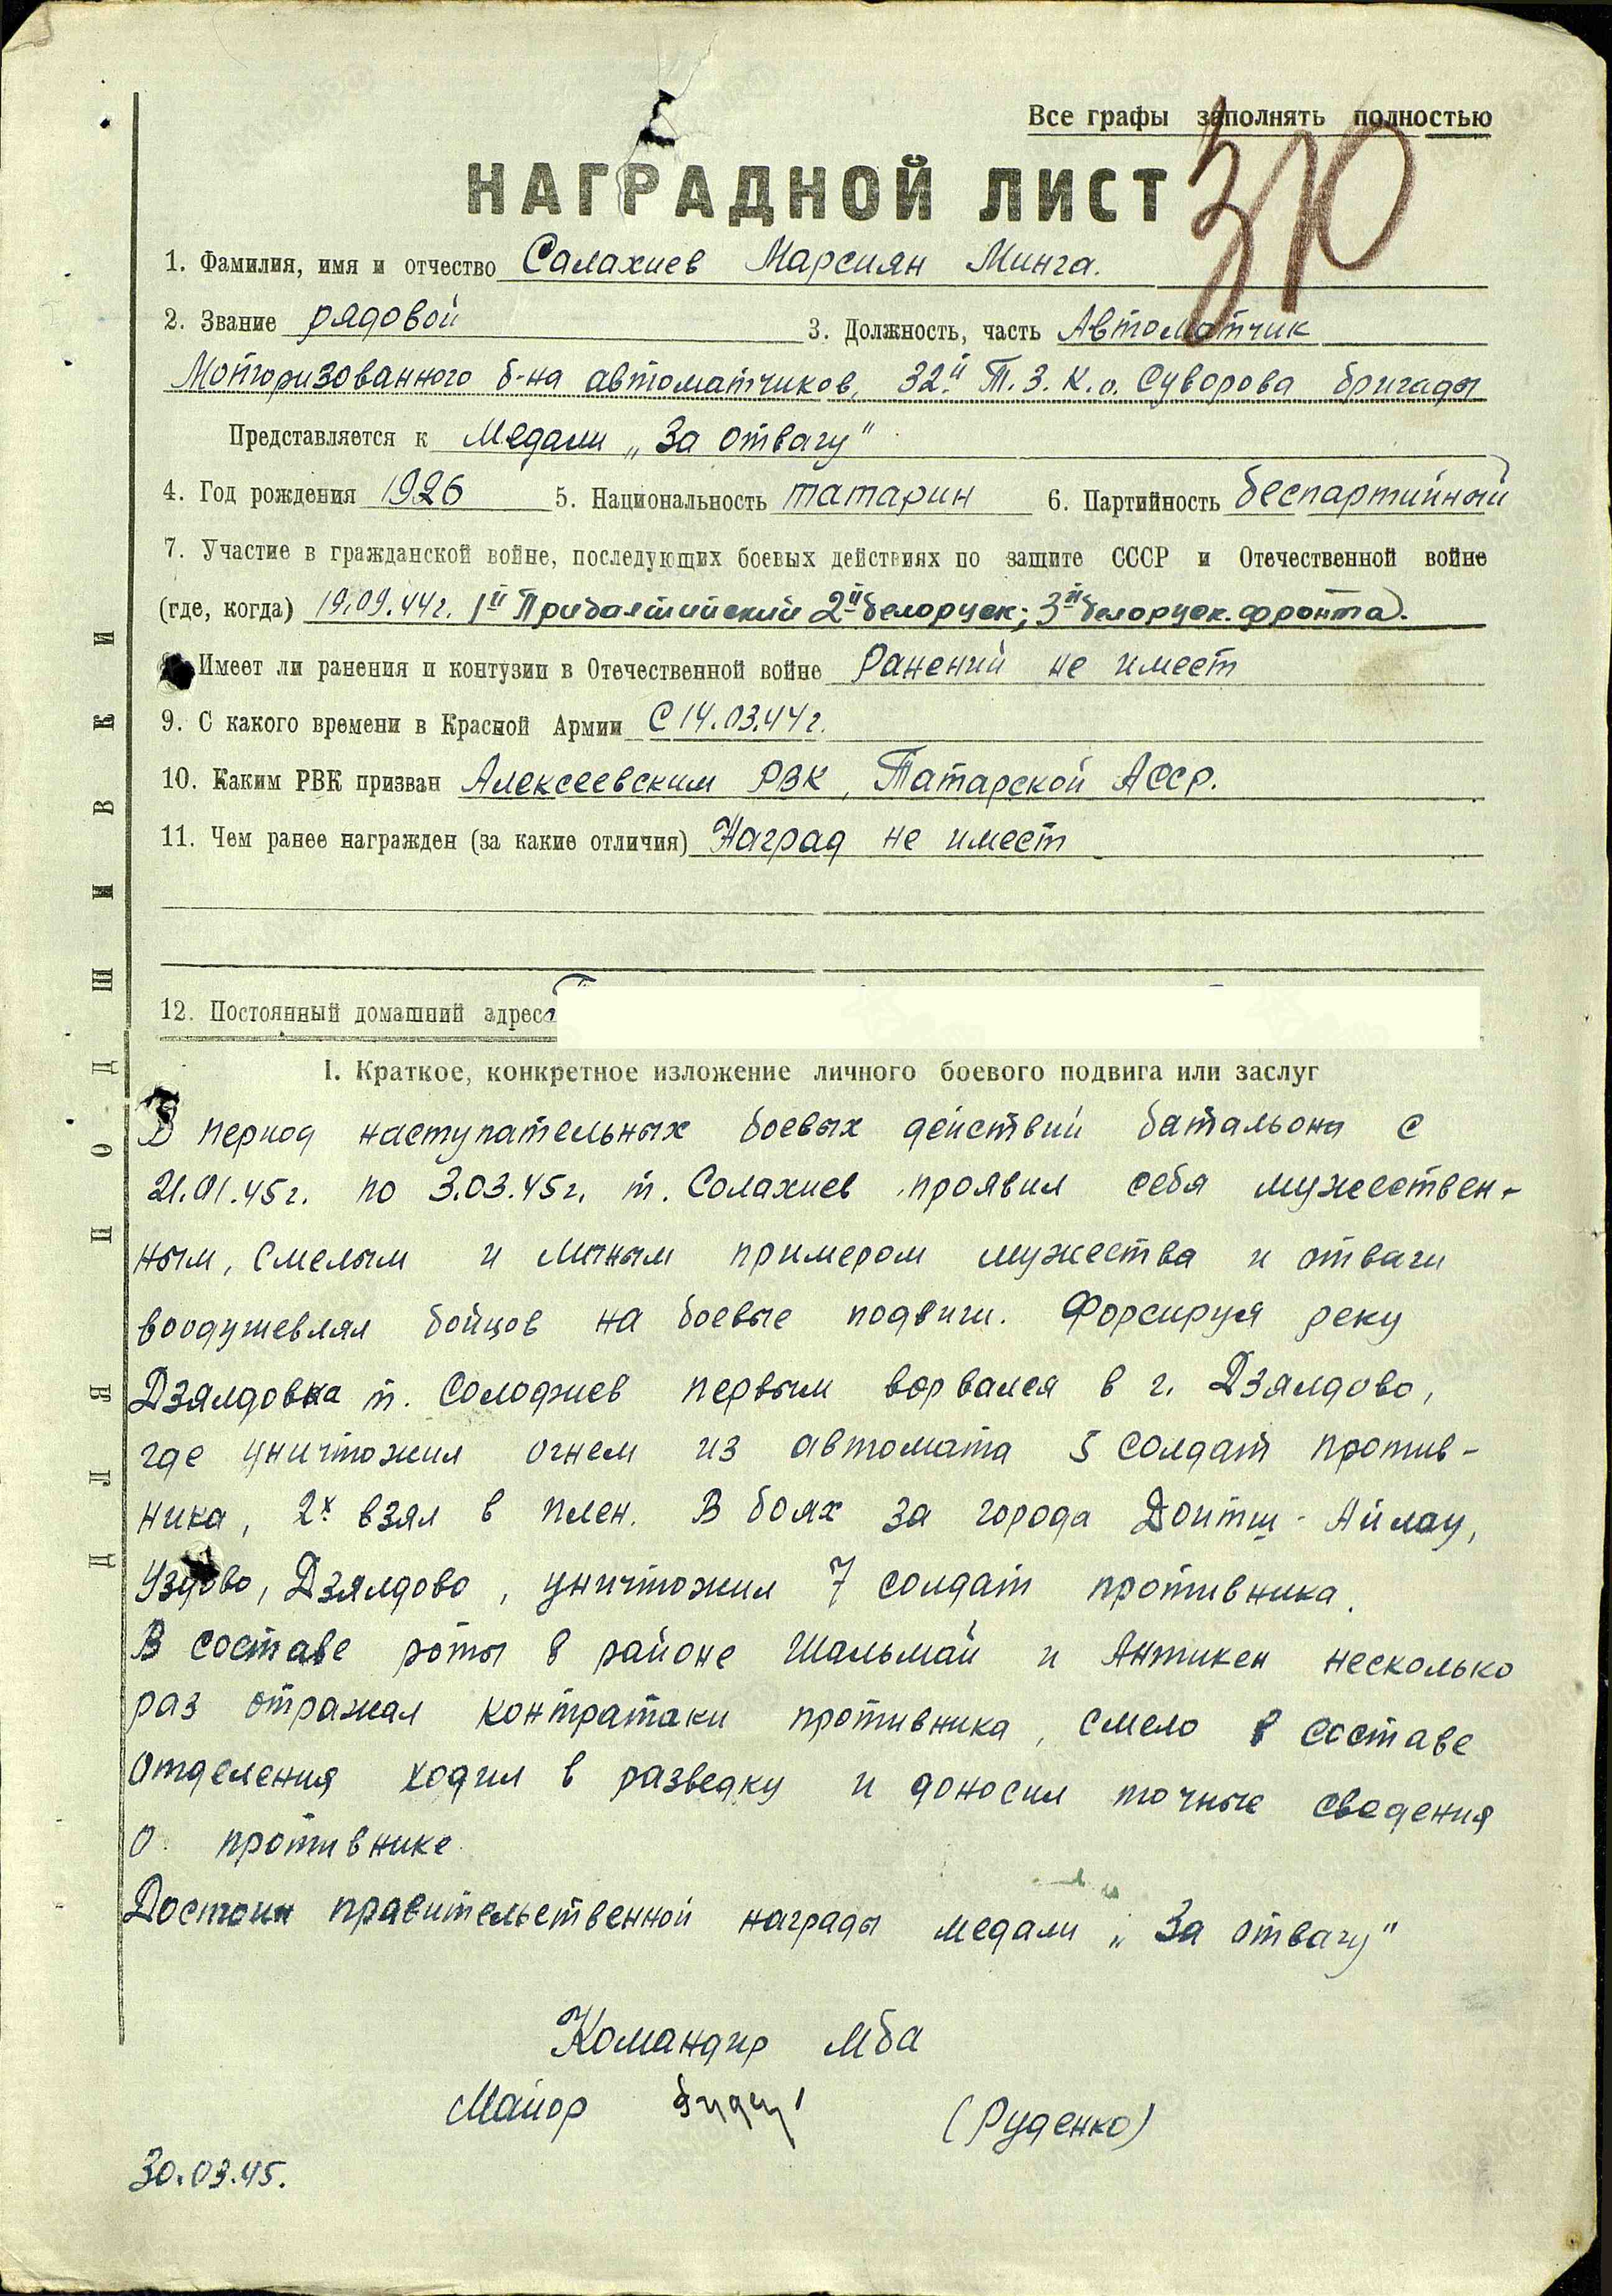 Все графы заполнять полностью
310
НАГРАДНОЙ ЛИСТ
1. Фамилия, имя и отчество Салахиев Марсиян Минга.
2. Звание рядовой 3. Должность, часть Автоматчик
Моторизованного б-на автоматчиков, 32й Т.З.К.о. Суворова бригады
Представляется к Медали „За отвагу"
4. Год рождения 1926 5. Национальность татарин 6. Партийность беспартийный
7. Участие в гражданской войне, последующих боевых действиях по защите СССР и Отечественной войне
(где, когда) 19.09.44г. 1й Прибалтийский 2й белорусск; 3й белорусск. фронта).
Имеет ли ранения и контузии в Отечественной войне Ранений не имеет
9. С какого времени в Красной Армии С 14.03.44г.
10. Каким РВК призван Алексеевским РВК, Татарской АССР.
11. Чем ранее награжден (за какие отличия) Наград не имеет
12. Постоянный домашний адрес
I. Краткое, конкретное изложение личного боевого подвига или заслуг
В период наступательных боевых действий батальона с
21.01.45г. по 3.03.45г. т. Солахиев проявил себя мужествен-
ным, смелым и личным примером мужества и отваги
воодушевлял бойцов на боевые подвиги. Форсируя реку
Дзялдовка т. первым ворвался в г. Дзялдово,
где уничтожил огнем из автомата 5 солдат против-
ника, 2х взял в плен. В боях за города Дойтш-Айлау,
Уздово, Дзялдово, уничтожил 7 солдат противника.
В составе роты в районе Шальмай и Антикен несколько
раз отражал контратаки противника, смело в составе
отделения ходил в разведку и доносил точные сведения
о противнике.
Достоин правительственной награды медали „За отвагу"
Командир мба
Майор (Руденко)
30.03.45.
ДЛЯ ПОДШИВКИ